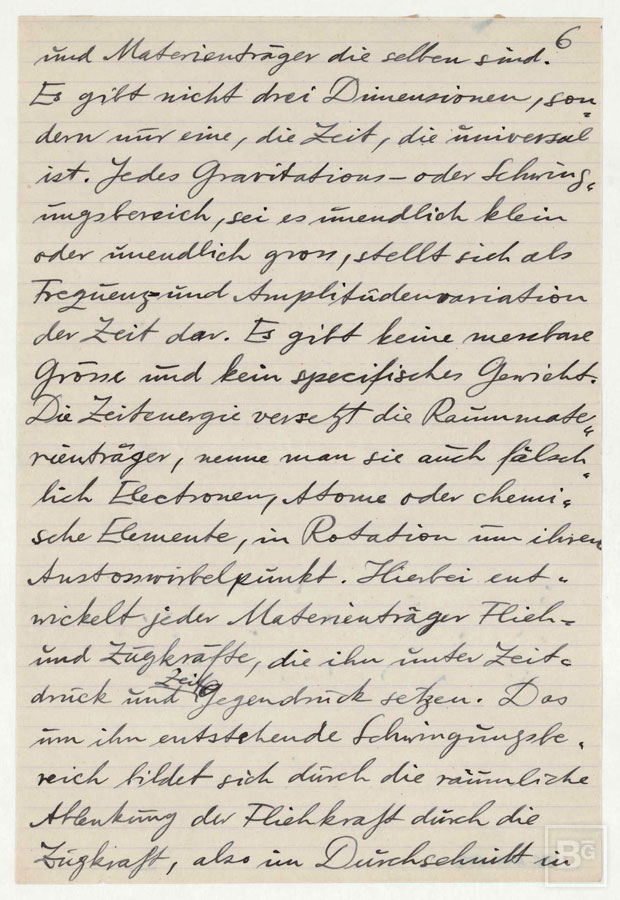 6
und Materienträger die selben sind.
Es gibt nicht drei Dimensionen, son=
dern nur eine, die Zeit, die universal
ist. Jedes Gravitations- oder Schwing=
ungsbereich, sei es unendlich klein
oder unendlich gross, stellt sich als
Frequenz- und Amplitudenvariation
der Zeit dar. Es gibt keine messbare
Grösse und kein specifisches Gewicht.
Die Zeitenergie versetzt die Raummate=
rienträger, nenne man sie auch fälsch=
lich Electronen, Atome oder chemi=
sche Elemente, in Rotation um ihren
Anstosswirbelpunkt. Hierbei ent=
wickelt jeder Materienträger Flieh=
und Zugkräfte, die ihn unter Zeit=
druck und Zeit Gegendruck setzen. Das
um ihn entstehende Schwingungsbe=
reich bildet sich durch die räumliche
Ablenkung der Fliehkraft durch die
Zugkraft, also im Durchschnitt in
BG